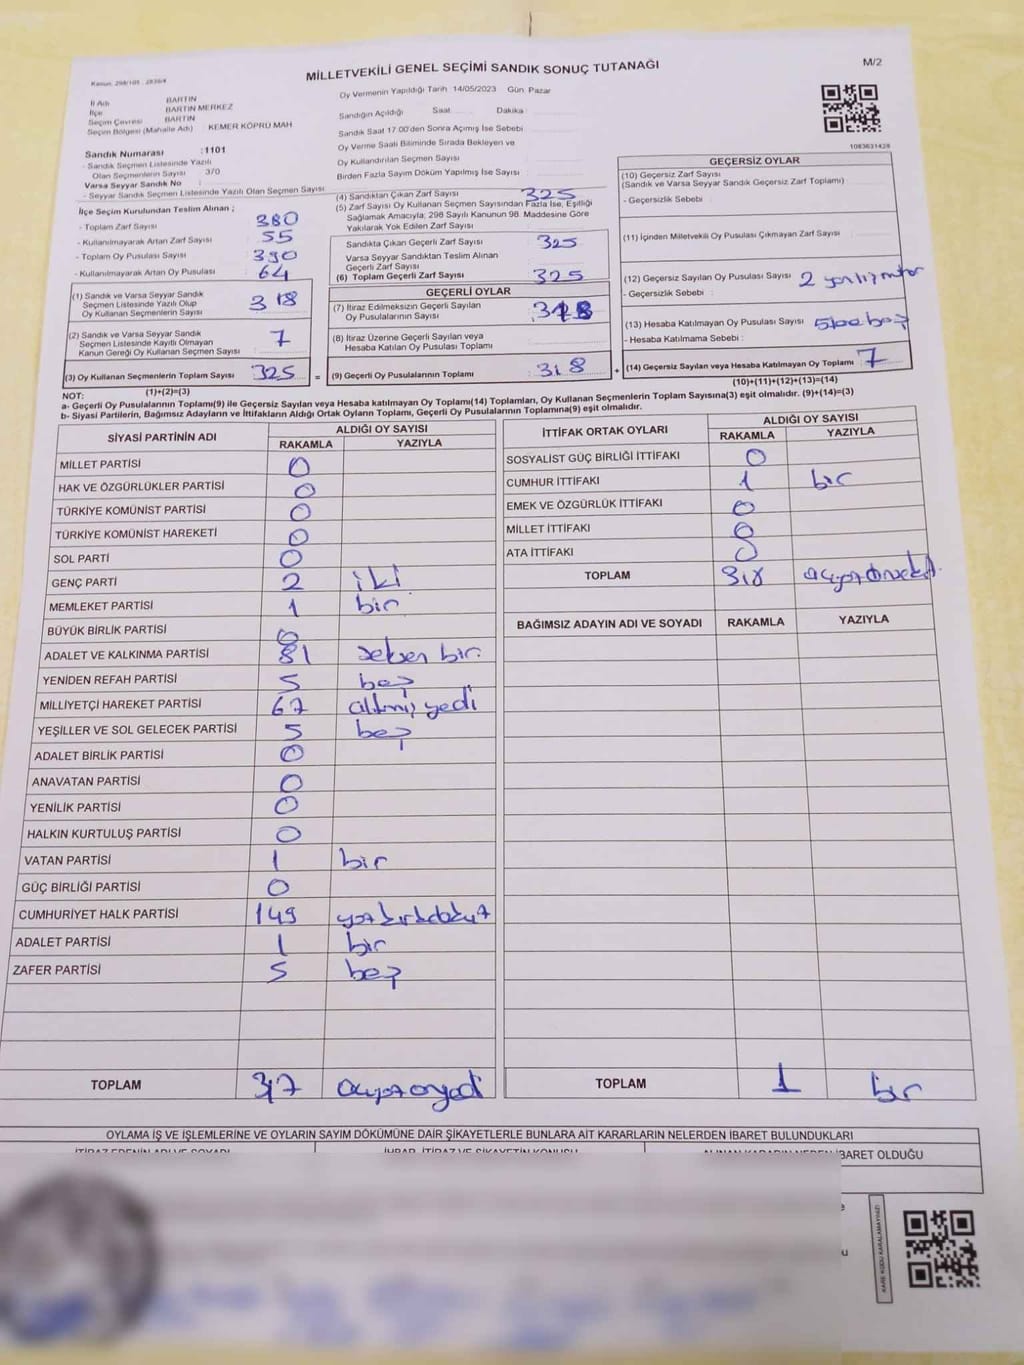 Kanun: 298/105 - 2839/4
MİLLETVEKİLİ GENEL SEÇİMİ SANDIK SONUÇ TUTANAĞI
M/2
İl Adı BARTIN
İlçe BARTIN MERKEZ
Seçim Çevresi BARTIN
Seçim Bölgesi (Mahalle Adı) KEMER KÖPRÜ MAH
Oy Vermenin Yapıldığı Tarih 14/05/2023 Gün Pazar
Sandığın Açıldığı Saat Dakika
Sandık Saat 17.00'den Sonra Açımış İse Sebebi
Oy Verme Saati Bitiminde Sırada Bekleyen ve
Oy Kullandırılan Seçmen Sayısı
Birden Fazla Sayım Döküm Yapılmış İse Sayısı
1083631428
Sandık Numarası :1101
- Sandık Seçmen Listesinde Yazılı
Olan Seçmenlerin Sayısı 370
Varsa Seyyar Sandık No
- Seyyar Sandık Seçmen Listesinde Yazılı Olan Seçmen Sayısı
İlçe Seçim Kurulundan Teslim Alınan ;
- Toplam Zarf Sayısı 380
- Kullanılmayarak Artan Zarf Sayısı 55
- Toplam Oy Pusulası Sayısı 390
- Kullanılmayarak Artan Oy Pusulası 64
(1) Sandık ve Varsa Seyyar Sandık
Seçmen Listesinde Yazılı Olup
Oy Kullanan Seçmenlerin Sayısı 318
(2) Sandık ve Varsa Seyyar Sandık
Seçmen Listesinde Kayıtlı Olmayan
Kanun Gereği Oy Kullanan Seçmen Sayısı 7
(3) Oy Kullanan Seçmenlerin Toplam Sayısı 325 =
(1)+(2)=(3)
(4) Sandıktan Çıkan Zarf Sayısı 325
(5) Zarf Sayısı Oy Kullanan Seçmen Sayısından Fazla İse, Eşitliği
Sağlamak Amacıyla; 298 Sayılı Kanunun 98. Maddesine Göre
Yakılarak Yok Edilen Zarf Sayısı
Sandıkta Çıkan Geçerli Zarf Sayısı 325
Varsa Seyyar Sandıktan Teslim Alınan
Geçerli Zarf Sayısı
(6) Toplam Geçerli Zarf Sayısı 325
GEÇERLİ OYLAR
(7) İtiraz Edilmeksizin Geçerli Sayılan
Oy Pusulalarının Sayısı 318
(8) İtiraz Üzerine Geçerli Sayılan veya
Hesaba Katılan Oy Pusulası Toplamı
(9) Geçerli Oy Pusulalarının Toplamı 318 +
GEÇERSİZ OYLAR
(10) Geçersiz Zarf Sayısı
(Sandık ve Varsa Seyyar Sandık Geçersiz Zarf Toplamı)
- Geçersizlik Sebebi :
(11) İçinden Milletvekili Oy Pusulası Çıkmayan Zarf Sayısı
(12) Geçersiz Sayılan Oy Pusulası Sayısı 2
- Geçersizlik Sebebi :
(13) Hesaba Katılmayan Oy Pusulası Sayısı 5
- Hesaba Katılmama Sebebi :
(14) Geçersiz Sayılan veya Hesaba Katılmayan Oy Toplamı 7
(10)+(11)+(12)+(13)=(14)
NOT:
a- Geçerli Oy Pusulalarının Toplamı(9) ile Geçersiz Sayılan veya Hesaba katılmayan Oy Toplamı(14) Toplamları, Oy Kullanan Seçmenlerin Toplam Sayısına(3) eşit olmalıdır. (9)+(14)=(3)
b- Siyasi Partilerin, Bağımsız Adayların ve İttifakların Aldığı Ortak Oyların Toplamı, Geçerli Oy Pusulalarının Toplamına(9) eşit olmalıdır.
SİYASİ PARTİNİN ADI ALDIĞI OY SAYISI
RAKAMLA YAZIYLA
MİLLET PARTİSİ 0
HAK VE ÖZGÜRLÜKLER PARTİSİ 0
TÜRKİYE KOMÜNİST PARTİSİ 0
TÜRKİYE KOMÜNİST HAREKETİ 0
SOL PARTİ 0
GENÇ PARTİ 2 iki
MEMLEKET PARTİSİ 1 bir
BÜYÜK BİRLİK PARTİSİ 0
ADALET VE KALKINMA PARTİSİ 81 seksen bir
YENİDEN REFAH PARTİSİ 5 beş
MİLLİYETÇİ HAREKET PARTİSİ 67 altmış yedi
YEŞİLLER VE SOL GELECEK PARTİSİ 5 beş
ADALET BİRLİK PARTİSİ 0
ANAVATAN PARTİSİ 0
YENİLİK PARTİSİ 0
HALKIN KURTULUŞ PARTİSİ 0
VATAN PARTİSİ 1 bir
GÜÇ BİRLİĞİ PARTİSİ 0
CUMHURİYET HALK PARTİSİ 149 yüz kırkdokuz
ADALET PARTİSİ 1 bir
ZAFER PARTİSİ 5 beş
TOPLAM 317 üçyüzonyedi
İTTİFAK ORTAK OYLARI ALDIĞI OY SAYISI
RAKAMLA YAZIYLA
SOSYALİST GÜÇ BİRLİĞİ İTTİFAKI 0
CUMHUR İTTİFAKI 1 bir
EMEK VE ÖZGÜRLÜK İTTİFAKI 0
MİLLET İTTİFAKI 0
ATA İTTİFAKI 0
TOPLAM 318 üçyüzonsekiz
BAĞIMSIZ ADAYIN ADI VE SOYADI RAKAMLA YAZIYLA
TOPLAM 1 bir
OYLAMA İŞ VE İŞLEMLERİNE VE OYLARIN SAYIM DÖKÜMÜNE DAİR ŞİKAYETLERLE BUNLARA AİT KARARLARIN NELERDEN İBARET BULUNDUKLARI
İTİRAZ EDENİN ADI VE SOYADI İHBAR, İTİRAZ VE ŞİKAYETİN KONUSU ALINAN KARARIN NEDEN İBARET OLDUĞU
KARE KODU KARALAMAYINIZ!